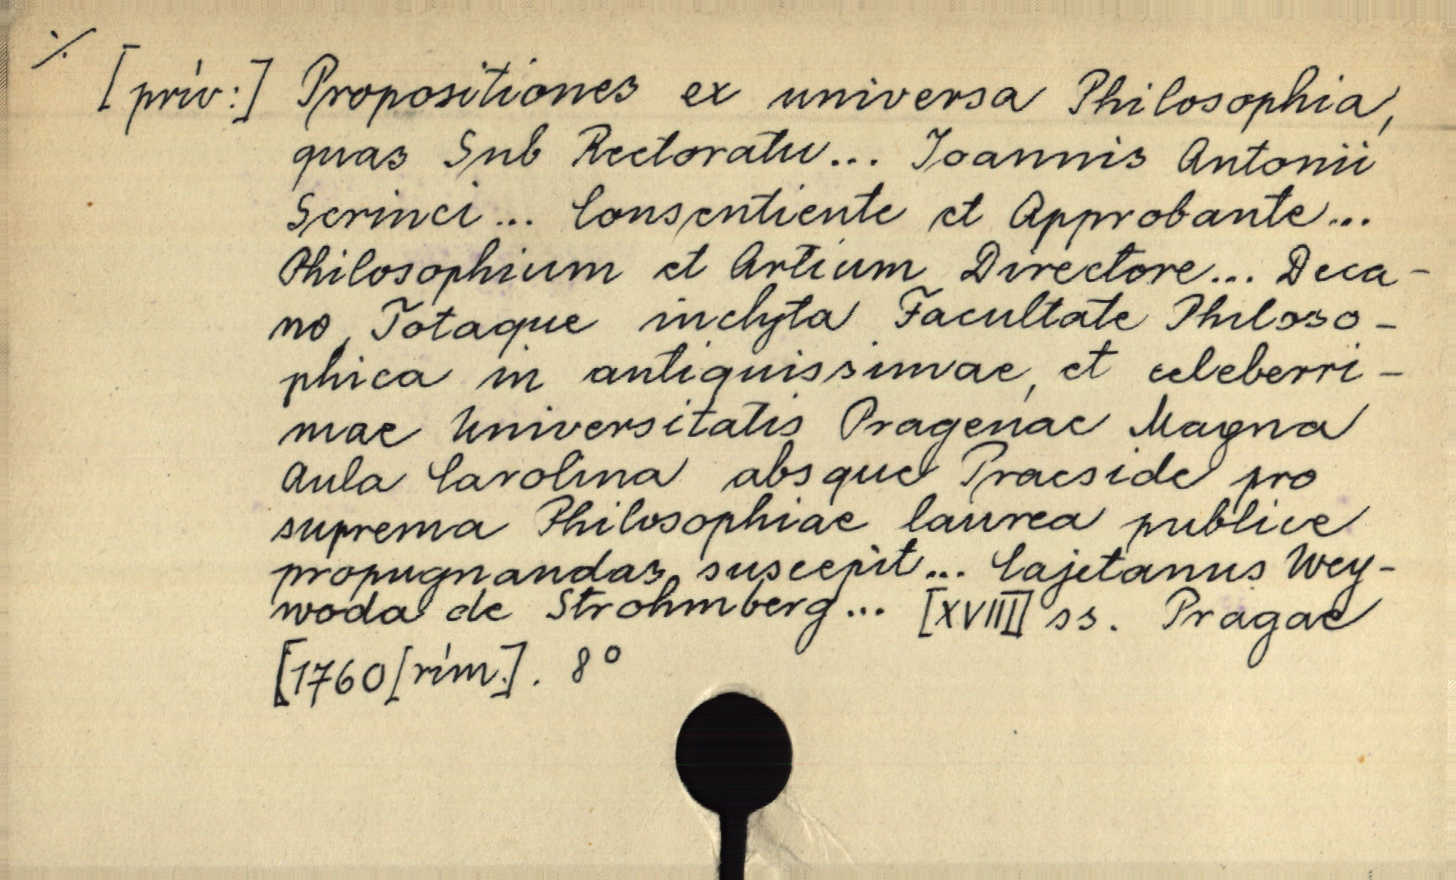 ·/· [priv:] Propositiones ex universa Philosophia,
quas Sub Rectoratu... Joannis Antonii
Scrinci... Consentiente et Approbante...
Philosophium et Artium Directore... Deca-
no, Totaque inclyta Facultate Philoso-
phica in antiquissimae, et celeberri-
mae Universitatis Pragenae Magna
Aula Carolina absque Praeside pro
suprema Philosophiae laurea publice
propugnandas suscepit... Cajetanus Wey-
woda de Strohmberg... [XVIII] ss. Pragae
[1760[rím.]. 8°